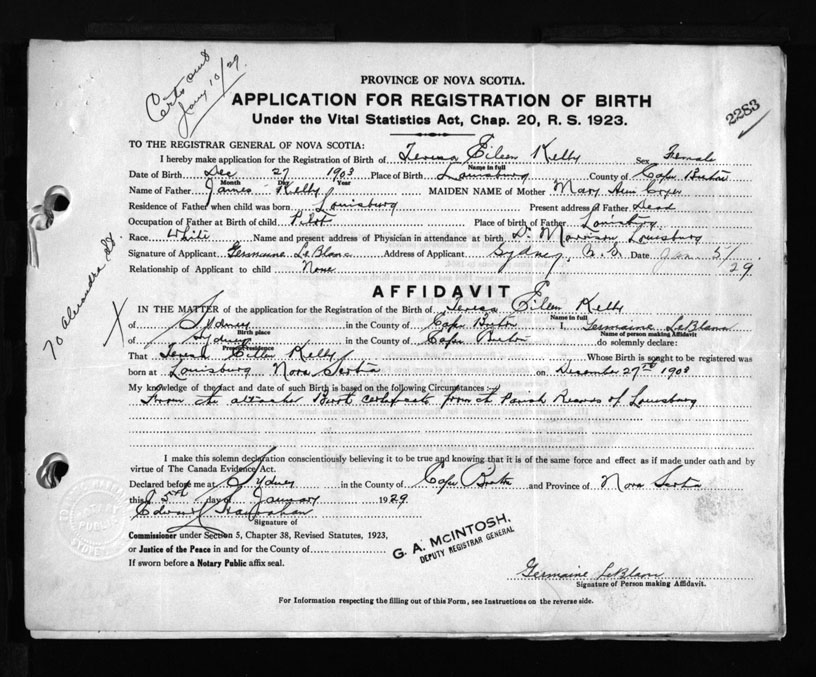 Certs sent
Jany 10/29.
PROVINCE OF NOVA SCOTIA.
APPLICATION FOR REGISTRATION OF BIRTH
Under the Vital Statistics Act, Chap. 20, R. S. 1923.
2283
TO THE REGISTRAR GENERAL OF NOVA SCOTIA:
I hereby make application for the Registration of Birth of Teresa Eileen Kelly Sex Female
Name in full
Date of Birth Dec 27 1903 Place of Birth Louisburg County of Cape Breton
Month Day Year
Name of Father James Kelly MAIDEN NAME of Mother Mary Ann
Residence of Father when child was born Louisburg Present address of Father Dead
Occupation of Father at Birth of child Pilot Place of birth of Father Louisburg
Race White Name and present address of Physician in attendance at birth Dr. Louisburg
Signature of Applicant Germaine LeBlanc Address of Applicant Sydney, C. B. Date Jan. 5/29.
Relationship of Applicant to child None
AFFIDAVIT
IN THE MATTER of the application for the Registration of the Birth of Teresa Eileen Kelly
Name in full
of Sydney in the County of Cape Breton I, Germaine LeBlanc
Birth place Name of person making Affidavit
of Sydney in the County of Cape Breton do solemnly declare:
Present residence
That Teresa Eileen Kelly Whose Birth is sought to be registered was
born at Louisburg Nova Scotia on December 27th 1903
My knowledge of the fact and date of such Birth is based on the following Circumstances:—
From the attached Birth certificate from the Parish Records of Louisburg
I make this solemn declaration conscientiously believing it to be true and knowing that it is of the same force and effect as if made under oath and by
virtue of The Canada Evidence Act.
Declared before me at Sydney in the County of Cape Breton and Province of Nova Scotia
this 5th day of January 1929
Edward
Signature of
Commissioner under Section 5, Chapter 38, Revised Statutes, 1923,
or Justice of the Peace in and for the County of
If sworn before a Notary Public affix seal.
G. A. McINTOSH,
DEPUTY REGISTRAR GENERAL
Germaine LeBlanc
Signature of Person making Affidavit.
For Information respecting the filling out of this Form, see Instructions on the reverse side.
70 Alexandra St.
X